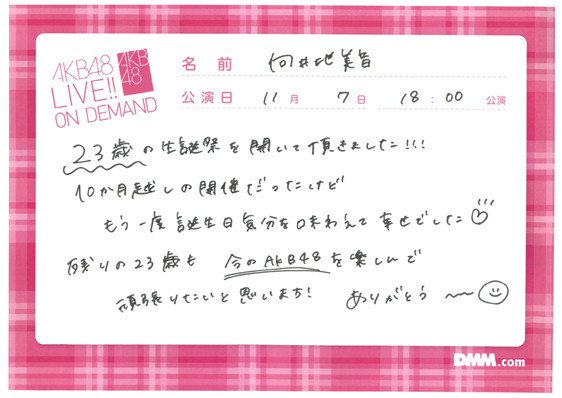 AKB48
LIVE!!
ON DEMAND
AKB
48
名前 向井地美音
公演日 11月 7日 18:00 公演
23歳の生誕祭を開いて頂きました!!!
10か月越しの開催だったけど
もう一度誕生日気分を味わえて幸せでした♡
残りの23歳も 今のAKB48を楽しんで
頑張りたいと思います! ありがとう〜
DMM.com